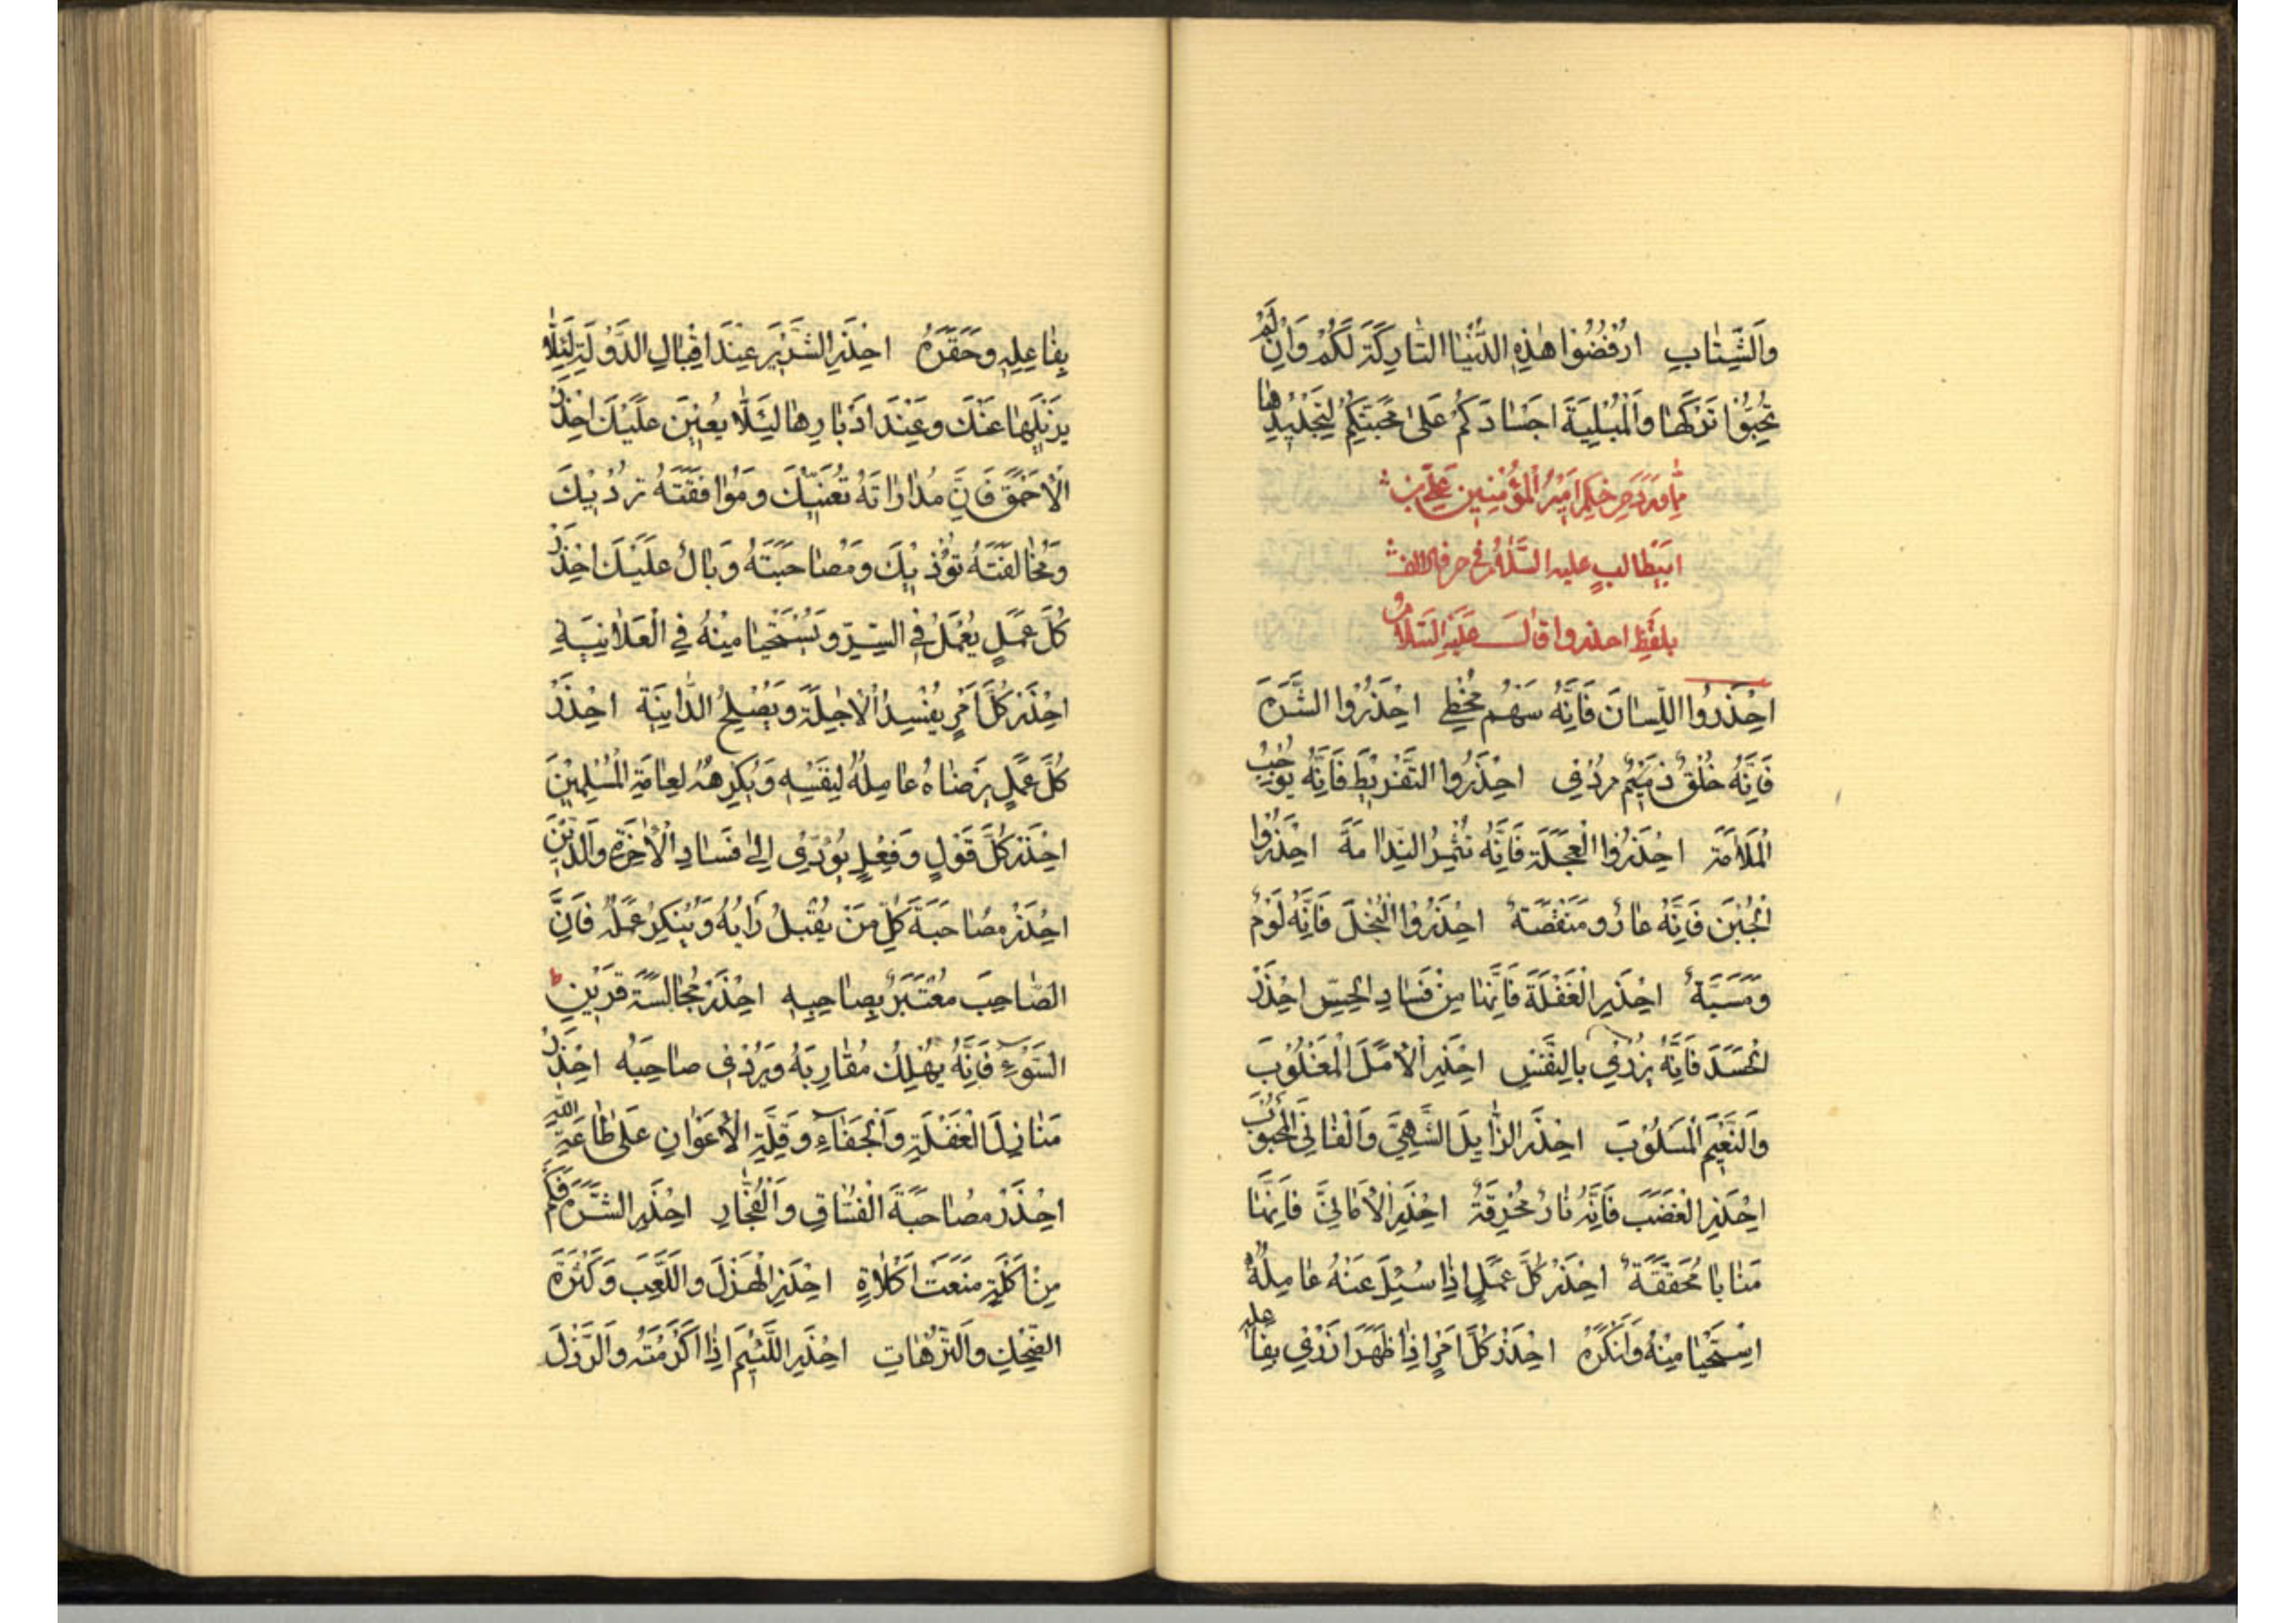 وَالشِّتَابِ اُرْفُضُوا هٰذِهِ الدُّنْيَا التَّارِكَةَ لَكُمْ وَاِنْ لَمْ
تُحِبُّوا تَرْكَهَا وَالْمُبْلِيَةَ اَجْسَادَكُمْ عَلىٰ مَحَبَّتِكُمْ لِتَجْدِيْدِهَا
مِمّا وَرَدَ مِنْ حِكَمِ اَمِيْرِ الْمُؤْمِنِيْنَ عَلِيِّ بْنِ
اَبِيْطَالِبٍ عليه السَّلامُ فى حرف الالف
بلَفْظِ احذروا قالَ عَلَيْهِ السَّلامُ
اِحْذَرُوا اللِّسَانَ فَاِنَّهُ سَهْمٌ مُخْطِي اِحْذَرُوا الشَّرَهَ
فَاِنَّهُ خُلْقٌ ذَمِيْمٌ مُرْدِي اِحْذَرُوا التَّفْرِيْطَ فَاِنَّهُ يُوْجِبُ
الْمَلَامَةَ اِحْذَرُوا الْعَجَلَةَ فَاِنَّهُ تُثْمِرُ النِّدَامَةَ اِحْذَرُوا
الْجُبْنَ فَاِنَّهُ عَارٌ وَمَنْقَصَةٌ اِحْذَرُوا الْبُخْلَ فَاِنَّهُ لَوْمٌ
وَمَسَبَّةٌ اِحْذَرِ الْغَفْلَةَ فَاِنَّهَا مِنْ فَسَادِ الْحِسِّ اِحْذَرْ
الْحَسَدَ فَاِنَّهُ يُزْرِي بِالنَّفْسِ اِحْذَرِ الْاَمَلَ الْمَغْلُوْبَ
وَالنَّعِيْمَ الْمَسْلُوْبَ اِحْذَرِ الزَّايِلَ الشَّهِيَّ وَالْفَانِيَ الْمَحْبُوْبَ
اِحْذَرِ الْغَضَبَ فَاِنَّهُ نَارٌ مُحْرِقَةٌ اِحْذَرِ الْاَمَانِيَّ فَاِنَّهَا
مَنَايَا مُحَقَّقَةٌ اِحْذَرْ كُلَّ عَمَلٍ اِذَا سُئِلَ عَنْهُ عَامِلُهُ
اِسْتَحْيَا مِنْهُ وَاَنْكَرَهُ اِحْذَرْ كُلَّ اَمْرٍ اِذَا ظَهَرَ اَزْرٰي بِفَاعِلِهِ
بِفَاعِلِهِ وَحَقَّرَهُ اِحْذَرِ الشَّرِّيْرَ عِنْدَ اِقْبَالِ الدَّوْلَةِ لِئَلَّا
يُزِيْلَهَا عَنْكَ وَعِنْدَ اِدْبَارِهَا لِئَلَّا يُعِيْنَ عَلَيْكَ اِحْذَرْ
الْاَحْمَقَ فَاِنَّ مُدَارَاتَهُ تُعَنِّيْكَ وَمُوَافَقَتَهُ تُرْدِيْكَ
وَمُخَالَفَتَهُ تُؤْذِيْكَ وَمُصَاحَبَتَهُ وَبَالٌ عَلَيْكَ اِحْذَرْ
كُلَّ عَمَلٍ يُعْمَلُ فِي السِّرِّ وَيُسْتَحْيَا مِنْهُ فِي الْعَلَانِيَةِ
اِحْذَرْ كُلَّ اَمْرٍ يُفْسِدُ الْاٰجِلَةَ وَيُصْلِحُ الدَّانِيَةَ اِحْذَرْ
كُلَّ عَمَلٍ يَرْضَاهُ عَامِلُهُ لِنَفْسِهِ وَيَكْرَهُهُ لِعَامَّةِ الْمُسْلِمِيْنَ
اِحْذَرْ كُلَّ قَوْلٍ وَفِعْلٍ يُؤَدِّي اِلىٰ فَسَادِ الْاٰخِرَةِ وَالدِّيْنِ
اِحْذَرْ مُصَاحَبَةَ كُلِّ مَنْ يُقْبَلُ رَايُهُ وَيُنْكَرُ عَمَلُهُ فَاِنَّ
الصَّاحِبَ مُعْتَبَرٌ بِصَاحِبِهِ اِحْذَرْ مُجَالَسَةَ قَرِيْنِ
السَّوْءِ فَاِنَّهُ يُهْلِكُ مُقَارِبَهُ وَيُرْدِي صَاحِبَهُ اِحْذَرْ
مَنَازِلَ الْغَفْلَةِ وَالْجَفَاءِ وَقِلَّةِ الْاَعْوَانِ عَلىٰ طَاعَةِ اللّٰهِ
اِحْذَرْ مُصَاحَبَةَ الْفُسَّاقِ وَالْفُجَّارِ اِحْذَرِ الشَّرَهَ فَكَمْ
مِنْ اَكْلَةٍ مَنَعَتْ اَكَلَاتٍ اِحْذَرِ الْهَزْلَ وَاللَّعِبَ وَكَثْرَةَ
الضِّحْكِ وَالتُّرَّهَاتِ اِحْذَرِ اللَّئِيْمَ اِذَا اَكْرَمْتَهُ وَالرَّذْلَ